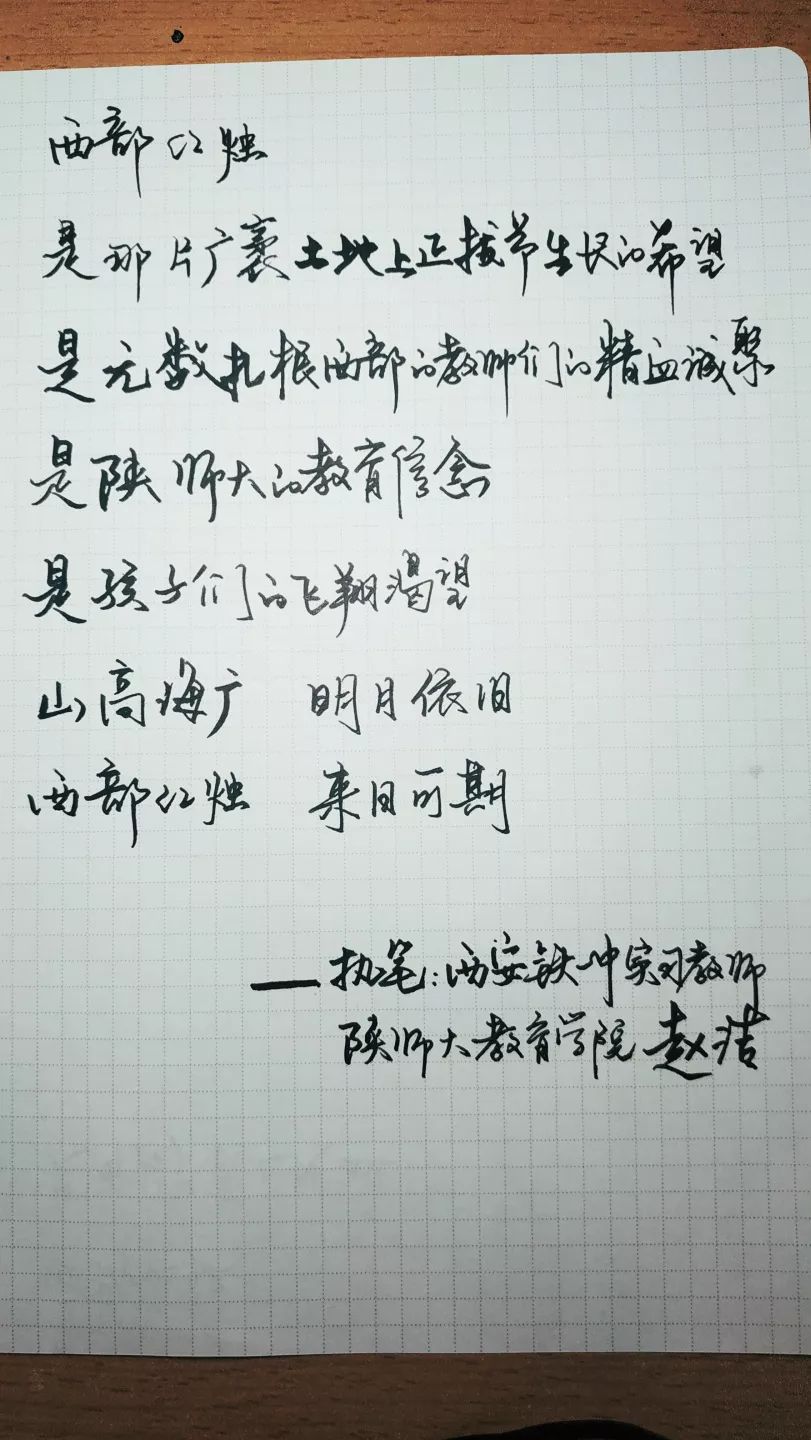 西部红烛
是那片广袤土地上正拔节生长的希望
是无数扎根西部的教师们的精血诚聚
是陕师大的教育信念
是孩子们的飞翔渴望
山高海广 明月依旧
西部红烛 来日可期
——执笔:西安铁一中实习教师
陕师大教育学院 赵洁